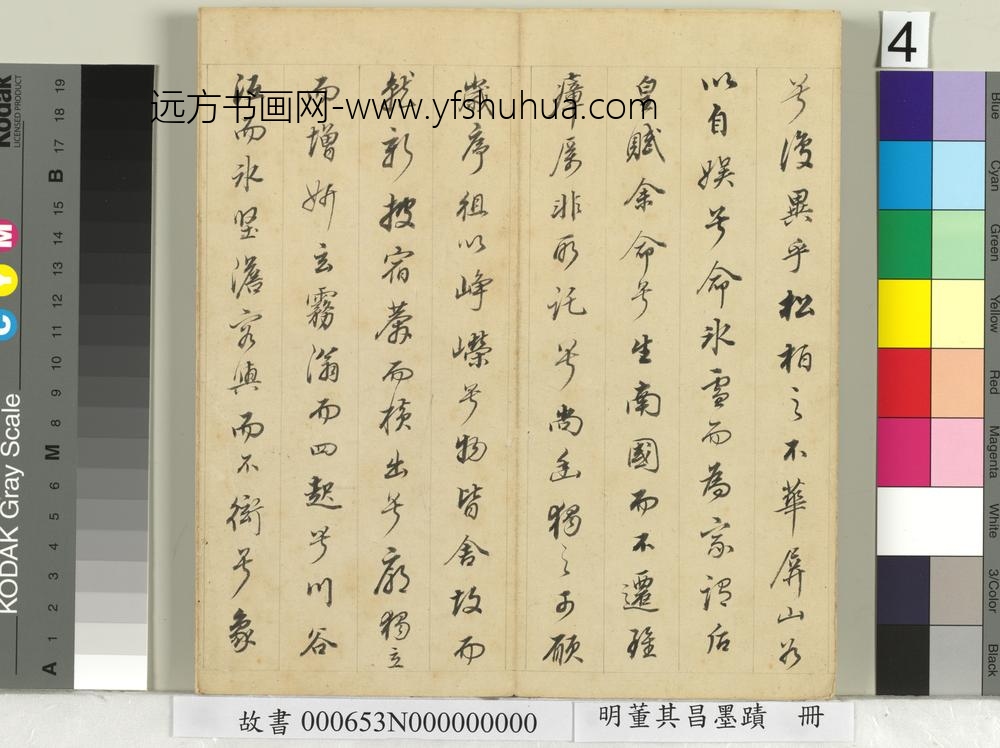 兮復異乎松柏之不華屏山谷
以自娱兮命氷雪而為家謂后
皇賦余命兮生南國而不遷雖
瘴癘非所託兮尚幽獨之可願
歲序徂以崢嶸兮物皆舍故而
就新披宿莽而横出兮廓獨立
而增妍玄霧滃而四起兮川谷
沍而氷堅澹容與而不衒兮象
远方书画网-www.yfshuhua.com
4
故書 000653N000000000
明董其昌墨蹟 冊
KODAK Gray Scale
Kodak
LICENSED PRODUCT
C Y M
A 1 2 3 4 5 6 M 8 9 10 11 12 13 14 15 B 17 18 19
Blue
Cyan
Green
Yellow
Red
Magenta
White
3/Color
Black